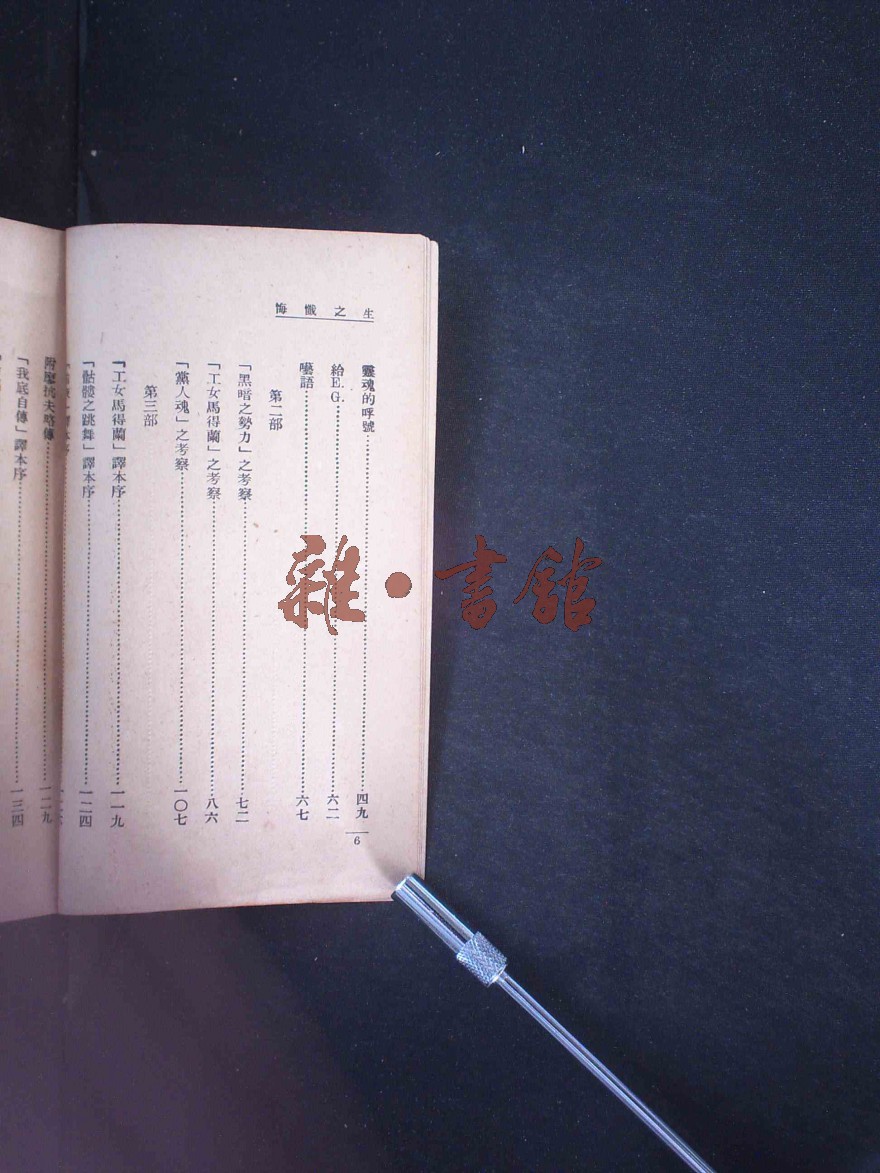 生之懺悔
靈魂的呼號……四九
給E.G.……六二
囈語……六七
第二部
「黑暗之勢力」之考察……七二
「工女馬得蘭」之考察……八六
「黨人魂」之考察……一〇七
第三部
「工女馬得蘭」譯本序……一一九
「骷髏之跳舞」譯本序……一二四
附廖抗夫略傳……一二九
「我底自傳」譯本序……一三四
6
雜·書館